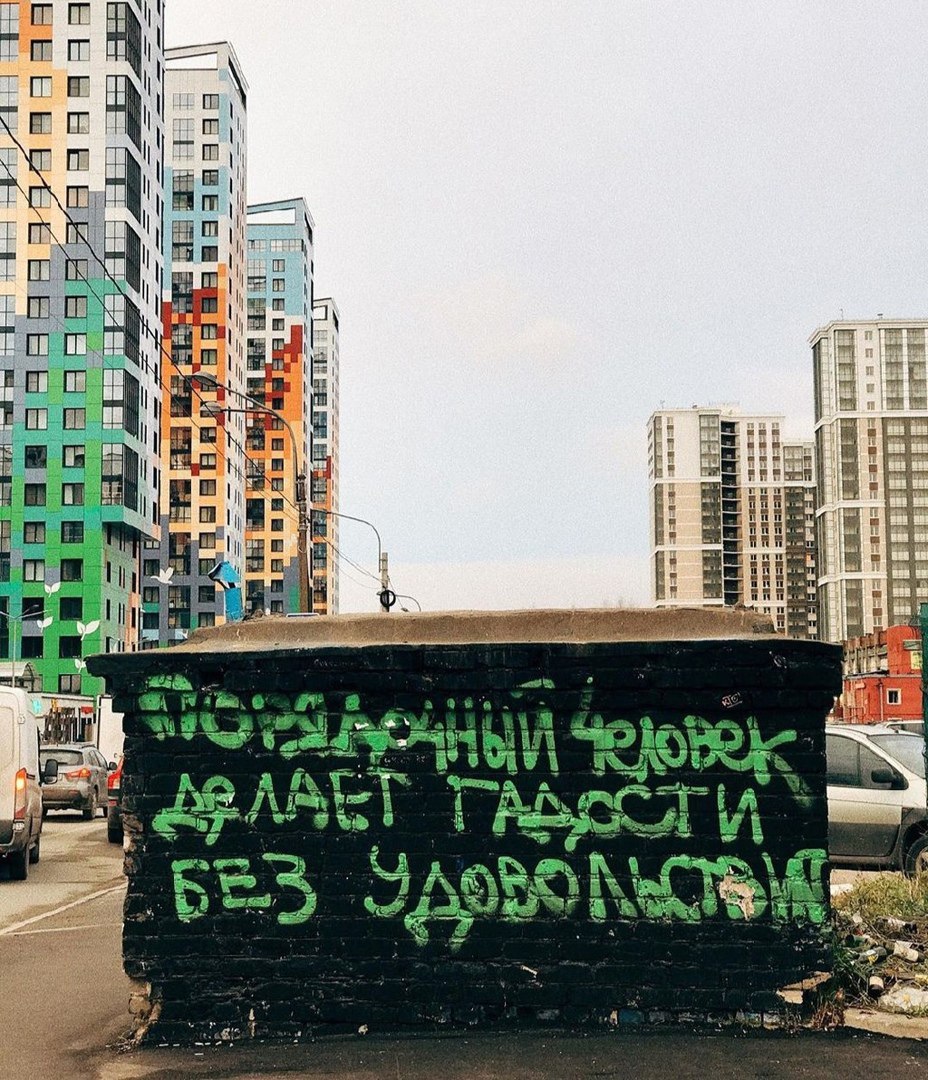 Порядочный человек
делает гадости
без удовольствия